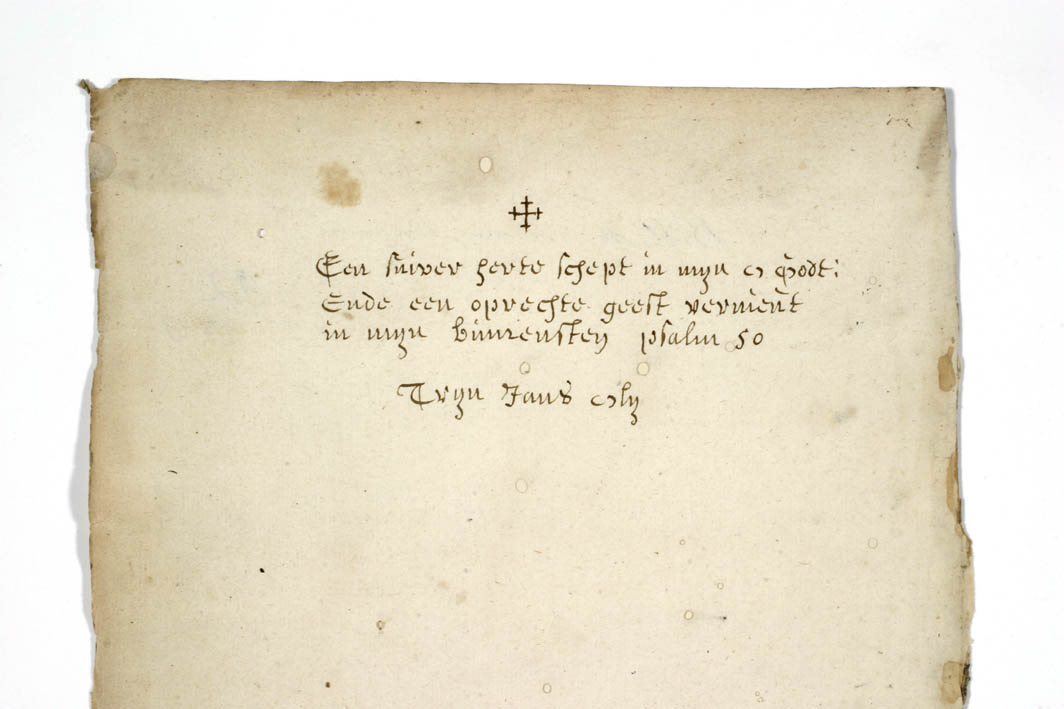 Een suiver herte schept in mijn O Godt:
Ende een oprechte geest vernieut
in mijn binnensten psalm 50
Trijn Jans Olij